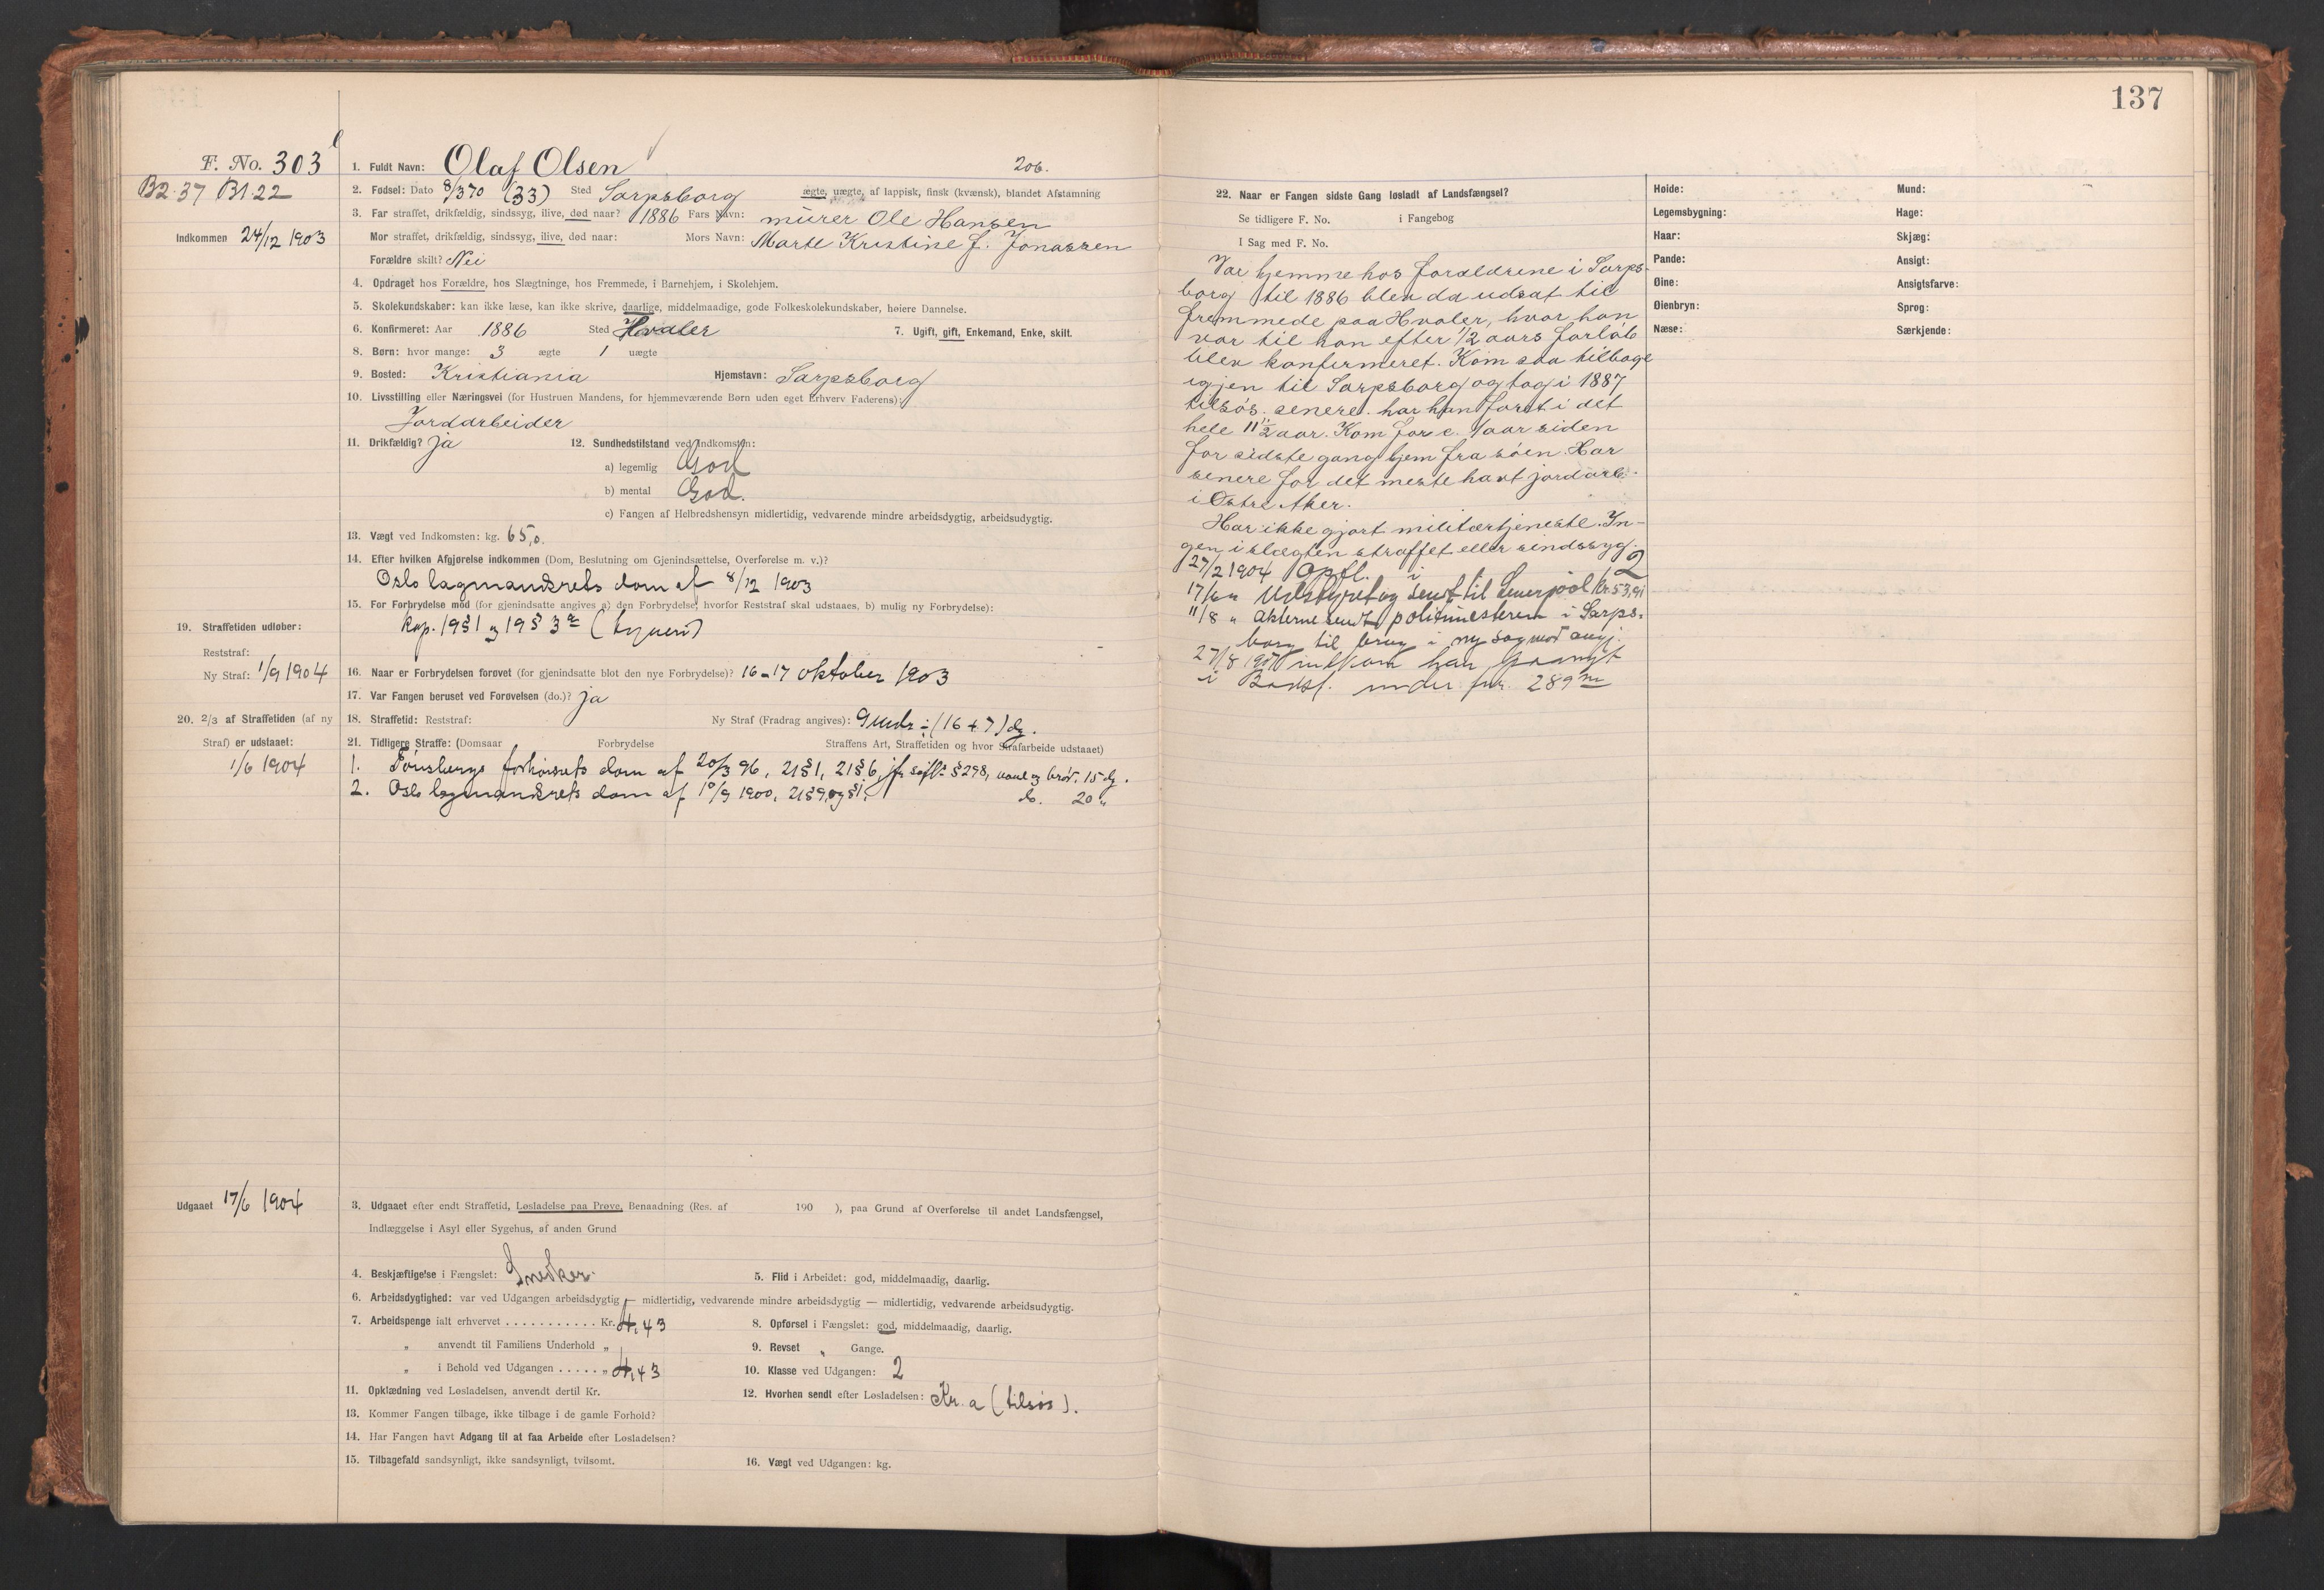 137
F. No. 303
B2.37 B1.22
1. Fuldt Navn: Olaf Olsen 206.
2. Fødsel: Dato 8/3 70 (33) Sted Sarpsborg ægte, uægte, af lappisk, finsk (kvænsk), blandet Afstamning
3. Far straffet, drikfældig, sindssyg, ilive, død naar? 1886 Fars Navn: murer Ole Hansen
Indkommen 24/12 1903
Mor straffet, drikfældig, sindssyg, ilive, død naar: Mors Navn: Marte Kristine f. Jonassen
Forældre skilt? Nei
4. Opdraget hos Forældre, hos Slægtninge, hos Fremmede, i Barnehjem, i Skolehjem.
5. Skolekundskaber: kan ikke læse, kan ikke skrive, daarlige, middelmaadige, gode Folkeskolekundskaber, høiere Dannelse.
6. Konfirmeret: Aar 1886 Sted Hvaler 7. Ugift, gift, Enkemand, Enke, skilt.
8. Børn: hvor mange: 3 ægte 1 uægte
9. Bosted: Kristiania Hjemstavn: Sarpsborg
10. Livsstilling eller Næringsvei (for Hustruen Mandens, for hjemmeværende Børn uden eget Erhverv Faderens):
Jordarbeider
11. Drikfældig? ja 12. Sundhedstilstand ved Indkomsten:
a) legemlig God
b) mental God.
c) Fangen af Helbredshensyn midlertidig, vedvarende mindre arbeidsdygtig, arbeidsudygtig.
13. Vægt ved Indkomsten: kg. 65,0.
14. Efter hvilken Afgjørelse indkommen (Dom, Beslutning om Gjenindsættelse, Overførelse m. v.)?
Oslo lagmandsrets dom af 8/12 1903
15. For Forbrydelse mod (for gjenindsatte angives a) den Forbrydelse, hvorfor Reststraf skal udstaaes, b) mulig ny Forbrydelse):
Kap. 19 § 1 og 19 § 3 (tyveri)
19. Straffetiden udløber:
Reststraf:
Ny Straf: 1/9 1904
16. Naar er Forbrydelsen forøvet (for gjenindsatte blot den nye Forbrydelse)? 16-17 oktober 1903
17. Var Fangen beruset ved Forøvelsen (do.)? ja
20. 2/3 af Straffetiden (af ny
Straf) er udstaaet:
1/6 1904
18. Straffetid: Reststraf: Ny Straf (Fradrag angives): 9 mdr ÷ (16 + 7) dg.
21. Tidligere Straffe: (Domsaar Forbrydelse Straffens Art, Straffetiden og hvor Strafarbeide udstaaet)
1. Tønsbergs forhørsrets dom af 20/3 96, 21 § 1, 21 § 6, jfr § 298, vand og brød. 15 dg.
2. Oslo lagmandsrets dom af 10/9 1900, 21 § 9, og § 1, do. 20 "
Udgaaet 17/6 1904
3. Udgaaet efter endt Straffetid, Løsladelse paa Prøve, Benaadning (Res. af 190 ), paa Grund af Overførelse til andet Landsfængsel,
Indlæggelse i Asyl eller Sygehus, af anden Grund
4. Beskjæftigelse i Fængslet: Snedker. 5. Flid i Arbeidet: god, middelmaadig, daarlig.
6. Arbeidsdygtighed: var ved Udgangen arbeidsdygtig — midlertidig, vedvarende mindre arbeidsdygtig — midlertidig, vedvarende arbeidsudygtig.
7. Arbeidspenge ialt erhvervet . . . . . . . . . . . Kr. 4,43 8. Opførsel i Fængslet: god, middelmaadig, daarlig.
„ anvendt til Familiens Underhold „ 9. Revset „ Gange.
„ i Behold ved Udgangen . . . . . „ 4,43 10. Klasse ved Udgangen: 2
11. Opklædning ved Løsladelsen, anvendt dertil Kr. 12. Hvorhen sendt efter Løsladelsen: Kr.a (tilsøs).
13. Kommer Fangen tilbage, ikke tilbage i de gamle Forhold?
14. Har Fangen havt Adgang til at faa Arbeide efter Løsladelsen?
15. Tilbagefald sandsynligt, ikke sandsynligt, tvilsomt. 16. Vægt ved Udgangen: kg.
22. Naar er Fangen sidste Gang løsladt af Landsfængsel?
Se tidligere F. No. i Fangebog
I Sag med F. No.
Var hjemme hos forældrene i Sarps-
borg til 1886 blev da udsat til
fremmede paa Hvaler, hvor han
var til han efter 1/2 aars forløb
blev konfirmeret. Kom saa tilbage
igjen til Sarpsborg og tog i 1887
tilsøs. senere har han faret i det
hele 11 1/2 aar. Kom for c. 1 aar siden
for sidste gang hjem fra søen. Har
senere for det meste havt jordarb.
i Østre Aker.
Har ikke gjort militærtjeneste. In-
gen i slægten straffet eller sindssyg.
27/2 1904 Opfl. i 2
17/6 " Udstyret og sendt til Kr. 53,91
11/8 " Akterne sendt politimesteren i Sarps-
borg til brug i ny sag mod angj.
27/8 1907 indkom han paanyt
i Bodsf. under fnr. 289
Høide: Mund:
Legemsbygning: Hage:
Haar: Skjæg:
Pande: Ansigt:
Øine: Ansigtsfarve:
Øienbryn: Sprog:
Næse: Særkjende: